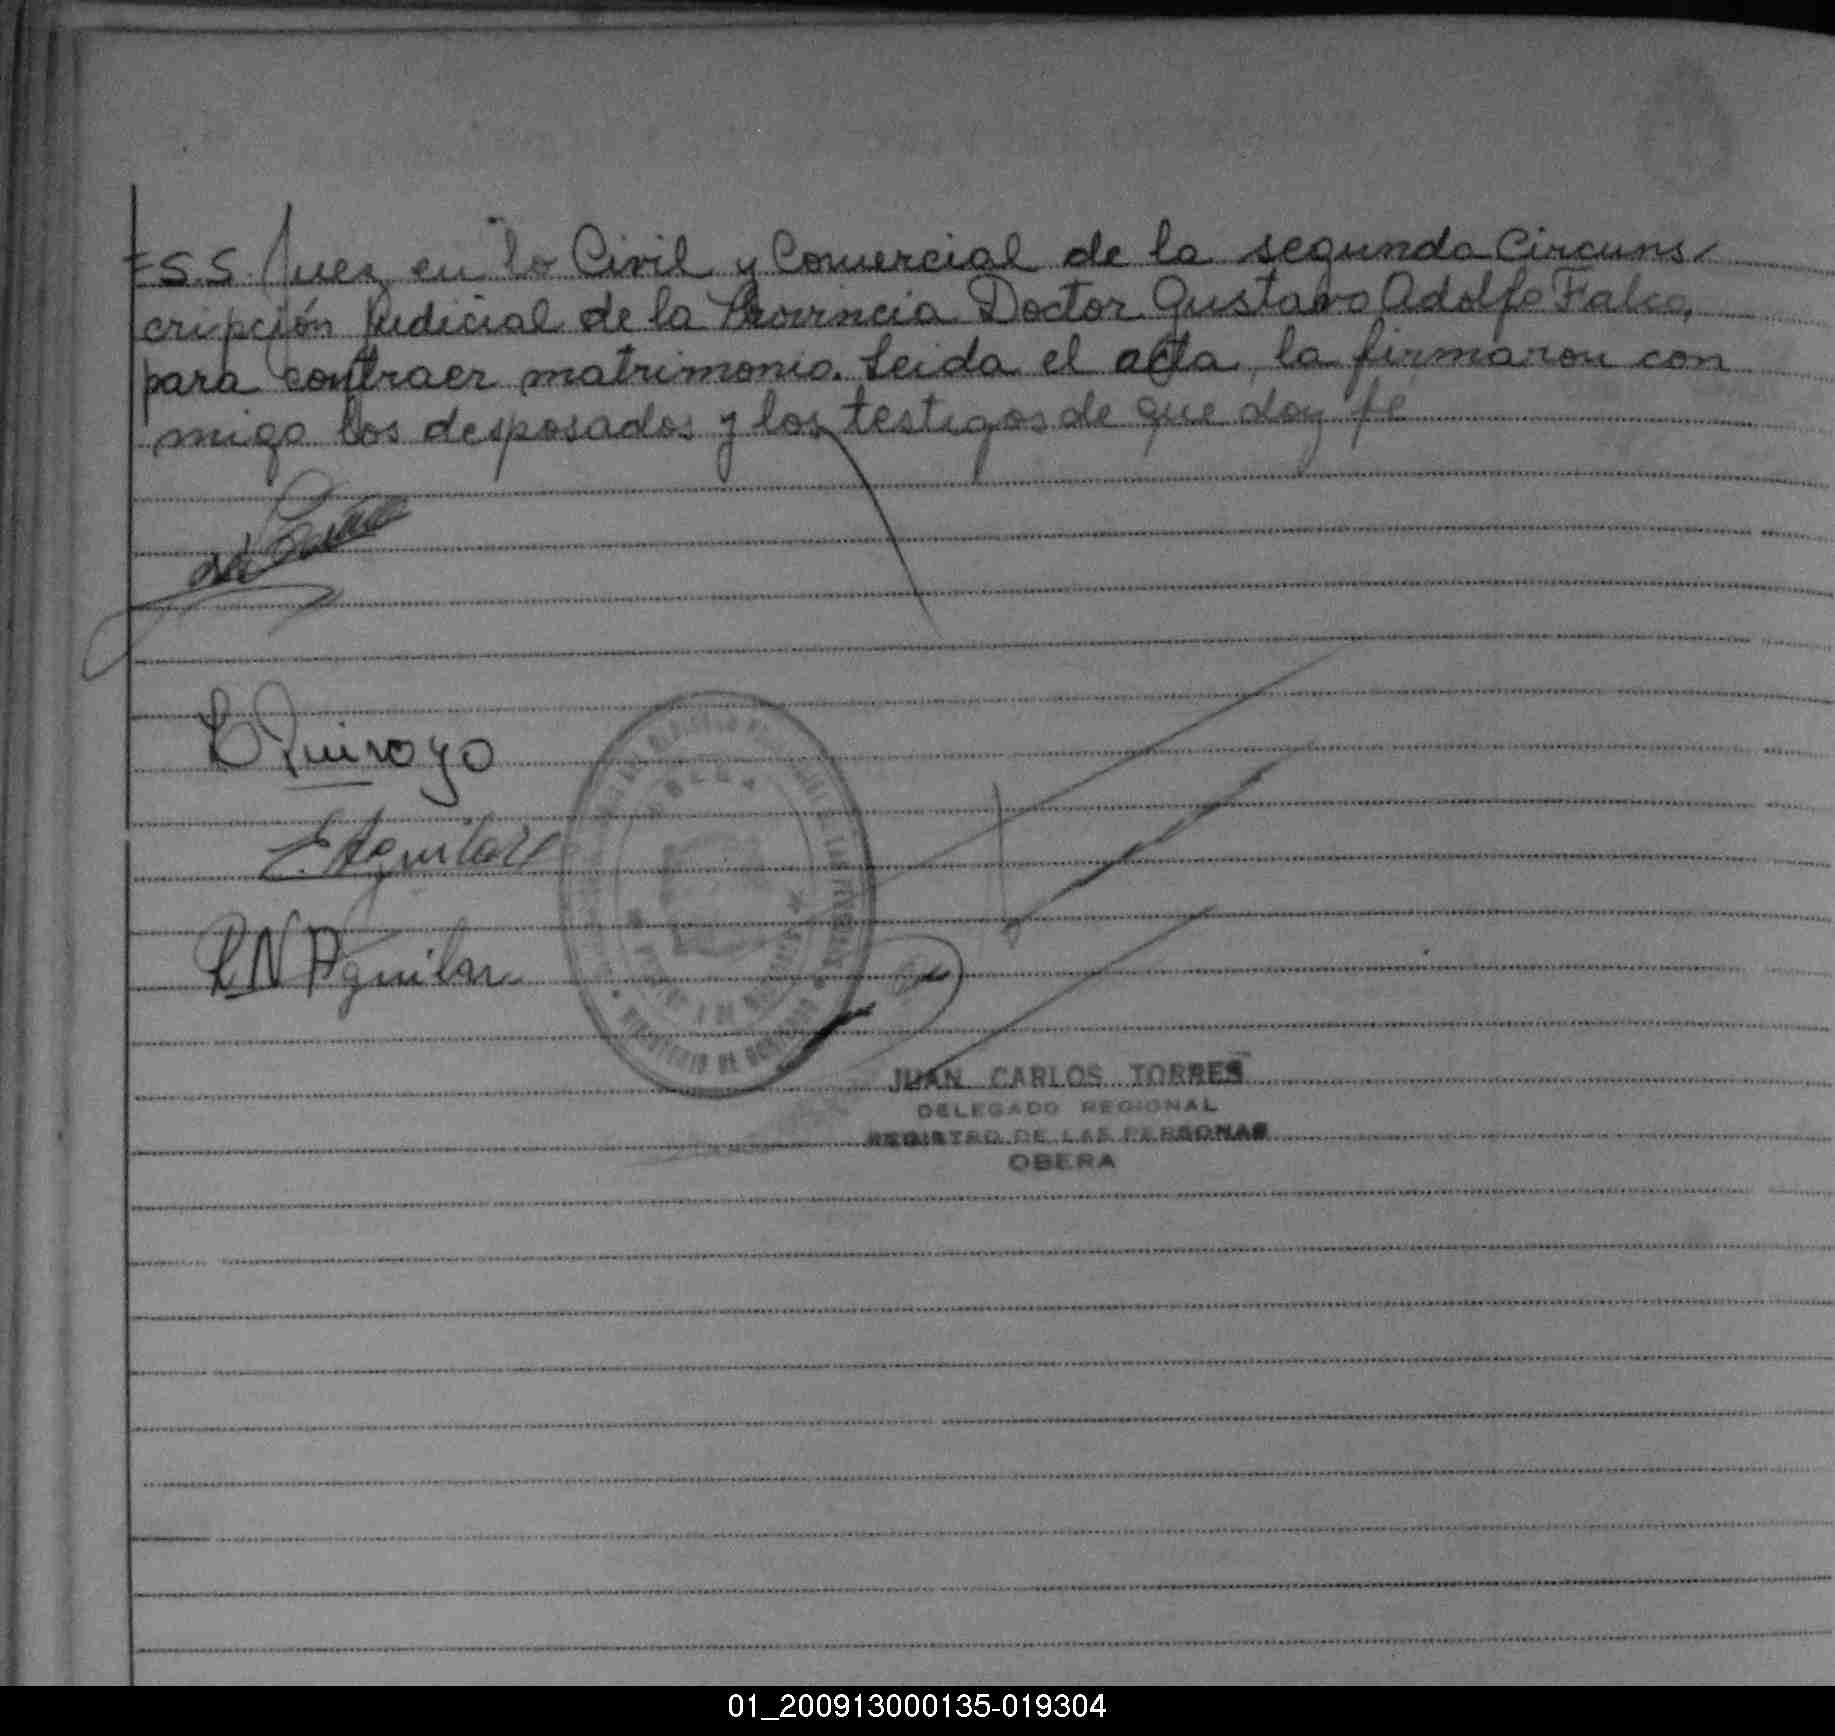 S.S. Juez en lo Civil y Comercial de la segunda Circuns
cripción Judicial de la Provincia Doctor Gustavo Adolfo Falco,
para contraer matrimonio. Leida el acta, la firmaron con
migo los desposados y los testigos de que doy fé
L Quiroga
E. Aguilar
R N Aguilar
JUAN CARLOS TORRES
DELEGADO REGIONAL
REGISTRO DE LAS PERSONAS
OBERA
01_200913000135-019304